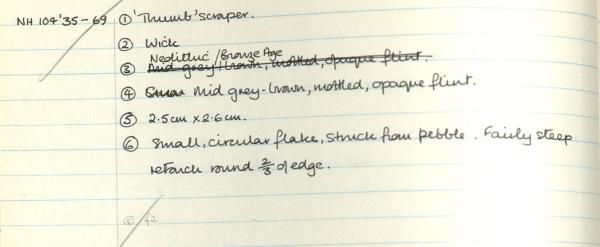 NH 104'35-69 ① 'Thumb' scraper.
② Wick
Neolithic / Bronze Age
③ Mid grey/brown, mottled, opaque flint.
④ Smaa Mid grey-brown, mottled, opaque flint.
⑤ 2.5cm x 2.6cm.
⑥ Small, circular flake, struck from pebble. Fairly steep
retouch round 2/3 of edge.